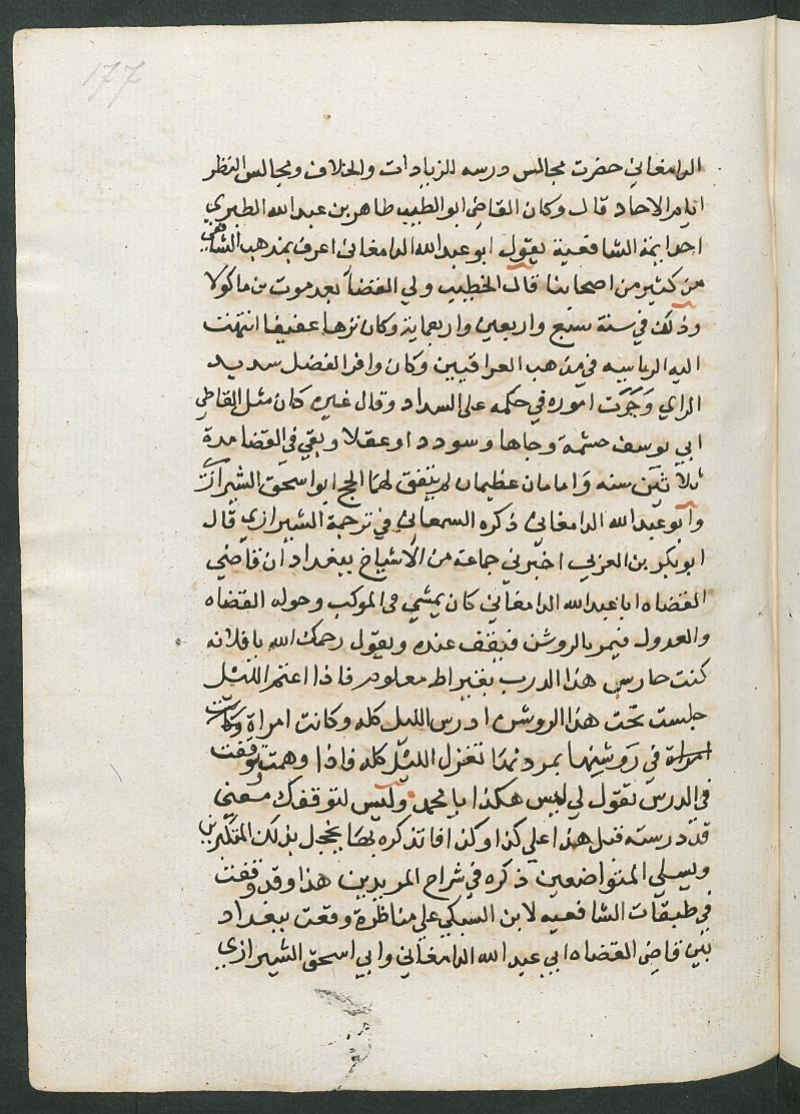 177
الدامغاني حضرت مجالس درسه للزيادات والخلاف ومجالس النظر
ايام الاحاد قال وكان القاضي ابو الطيب طاهر بن عبد الله الطبري
احد ايمة الشافعية يقول ابو عبد الله الدامغاني اعرف بمذهب الشافعي
من كثير من اصحابنا قال الخطيب ولي القضا بعد موت بن ماكولا
وذلك في سنة سبع واربعين واربعماية وكان نزها عفيفا انتهت
اليه الرياسيه في مذهب العراقيين وكان وافر الفضل سديد
الراي وجرت اموره في حكمه على السداد وقال غيره كان مثل القاضي
ابي يوسف حشمة وجاها وسودداً وعقلا وبقي في القضا مدة
ثلاثين سنه وامامان عظيمان لم يتفق لهما الحج ابو اسحق الشيرازي
وابو عبد الله الدامغاني ذكره السمعاني في ترجمة الشيرازي قال
ابو بكر بن العربي اخبرني جماعة من الاشياخ ببغداد ان قاضي
القضاه ابا عبد الله الدامغاني كان يمشي في الموكب وحوله القضاه
والعدول فيمر بالروشن فيقف عنده ويقول رحمك الله يا فلانه
كنت حارس هذا الدرب بقيراط معلوم فاذا اعتم الليل
جلست تحت هذا الروشن ادرس الليل كله وكانت امراة وكانت
امراة في روشنها بمردنها تغزل الليل كله فاذا وهمت توقفت
في الدرس تقول لي ليس هكذا يا محمد وليس لتوقفك معنى
قد درسته قبل هذا علي كذا وكذا فاتذكره بها يخجل بذلك المتكبرين
ويسلي المتواضعين ذكره في شراح المريدين هذا وقد وقفت
في طبقات الشافعيه لابن السبكي علي مناظرة وقعت ببغداد
بين قاضي القضاه ابي عبد الله الدامغاني وابي اسحق الشيرازي